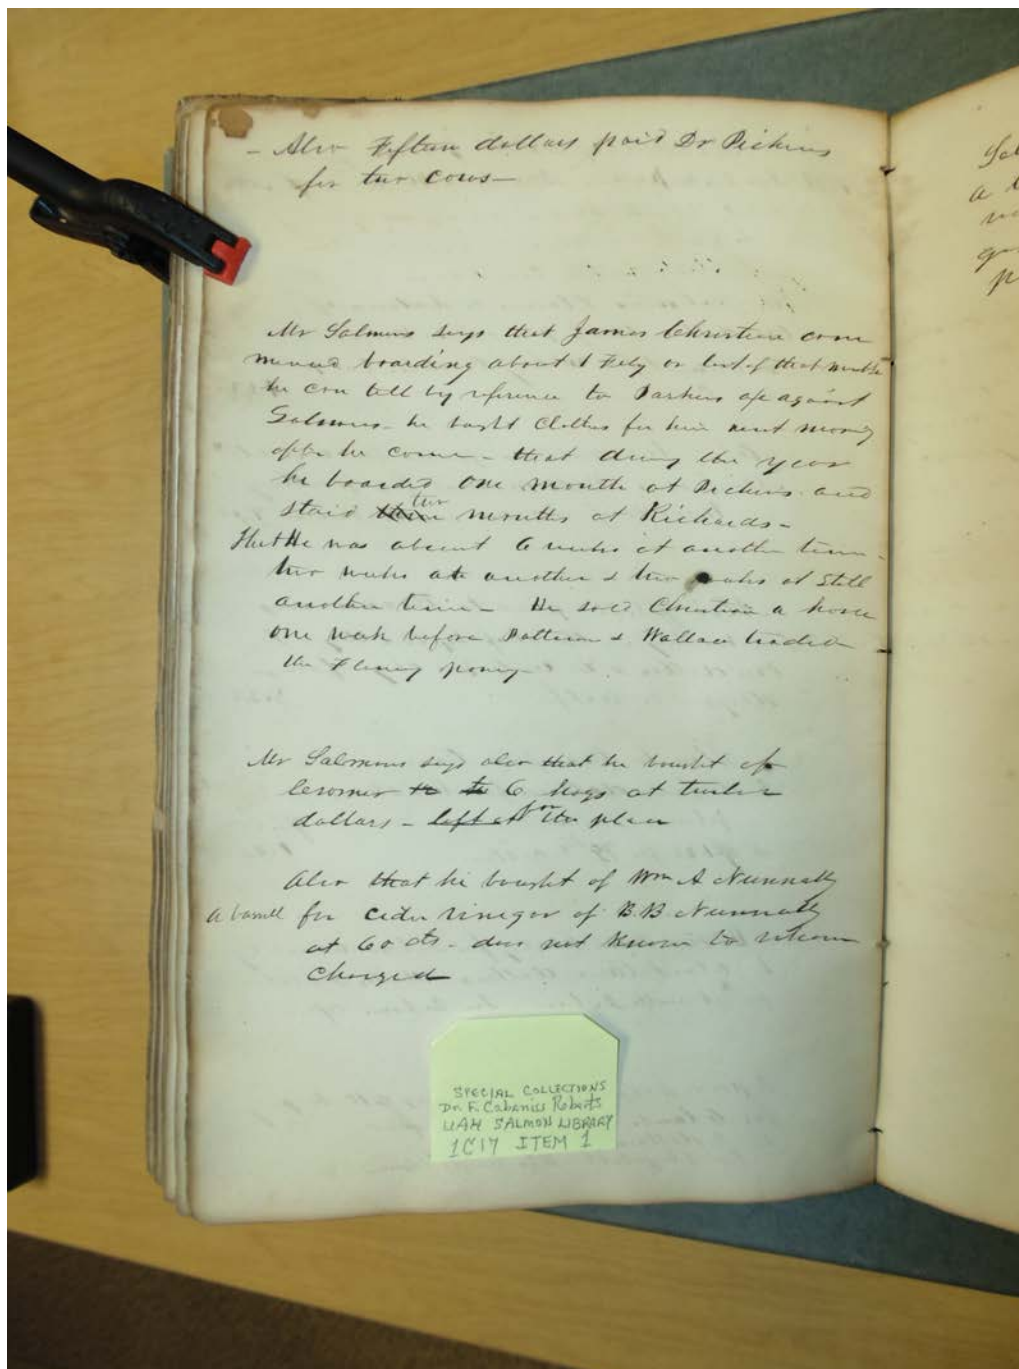 - Also Fifteen dollars paid Dr Pickens
for two cows -
Mr Salmons says that James Christian com
menced boarding about 1 Feby or last of that month
he can tell by reference to Parkers a/c against
Salmons - he bought Clothes for him next morning
after he come - that during the year
he boarded one month at Pickens and
staid two months at Richards -
That He was absent 6 weeks at another time -
two weeks at another & two weeks at still
another time - He sold Christian a horse
one week before Patterson & Wallace traded
the Fleming poney -
Mr Salmons says also that he bought of
6 hogs at twelve
dollars - left at for the place
Also that he bought of Wm A Nunnally
a barrell for cider vinegar of B.B Nunnally
at 60 cts - does not know to whom
charged
SPECIAL COLLECTIONS
Dr. F. Cabaniss Roberts
UAH SALMON LIBRARY
1C17 ITEM 1
Sal
a
p